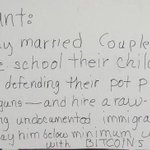 ant:
y married Couple
e school their child
defending their pot p
guns — and hire a raw-
ng undocumented immigra
ay him below minimum w
with BITCOINS